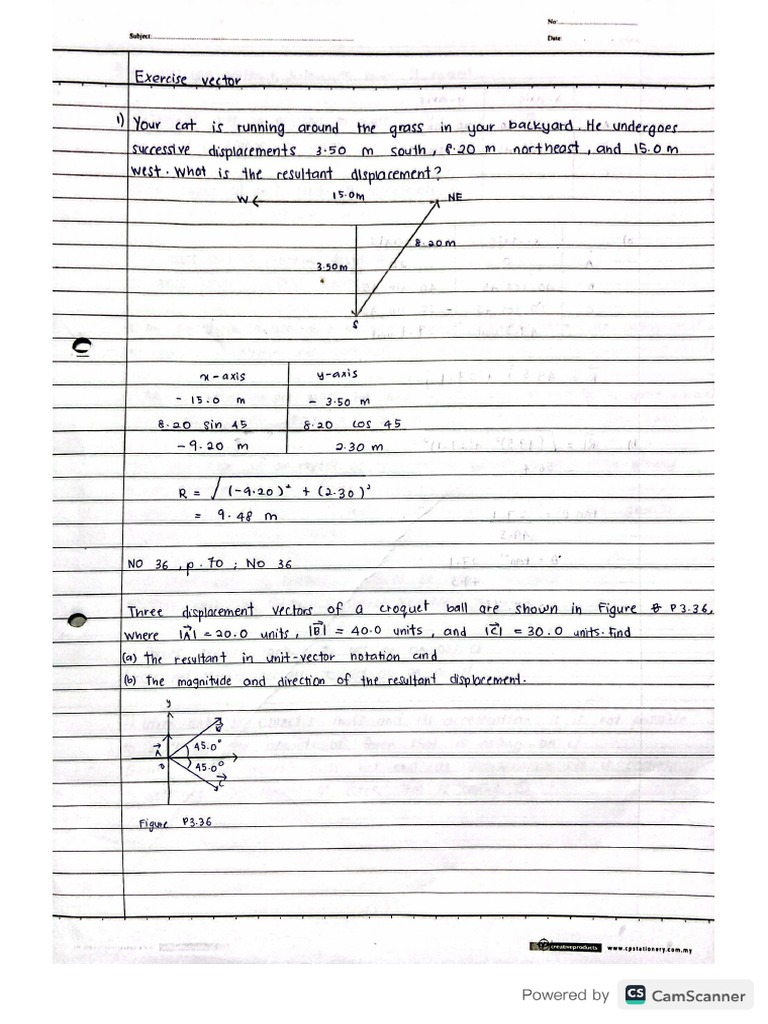 No:
Subject:
Date:
Exercise vector
1) Your cat is running around the grass in your backyard. He undergoes
successive displacements 3.50 m south, 8.20 m northeast, and 15.0 m
west. What is the resultant displacement?
W 15.0m NE
8.20m
3.50m
S
x-axis y-axis
- 15.0 m - 3.50 m
8.20 sin 45 8.20 cos 45
-9.20 m 2.30 m
R = √(-9.20)² + (2.30)²
= 9.48 m
NO 36, p.70 ; NO 36
Three displacement vectors of a croquet ball are shown in Figure P3.36,
where |A⃗| = 20.0 units, |B⃗| = 40.0 units, and |C⃗| = 30.0 units. Find
(a) the resultant in unit-vector notation and
(b) the magnitude and direction of the resultant displacement.
y
B⃗
A⃗ 45.0°
0 45.0°
C⃗
Figure P3.36
creativeproducts www.cpstationery.com.my
Powered by CS CamScanner